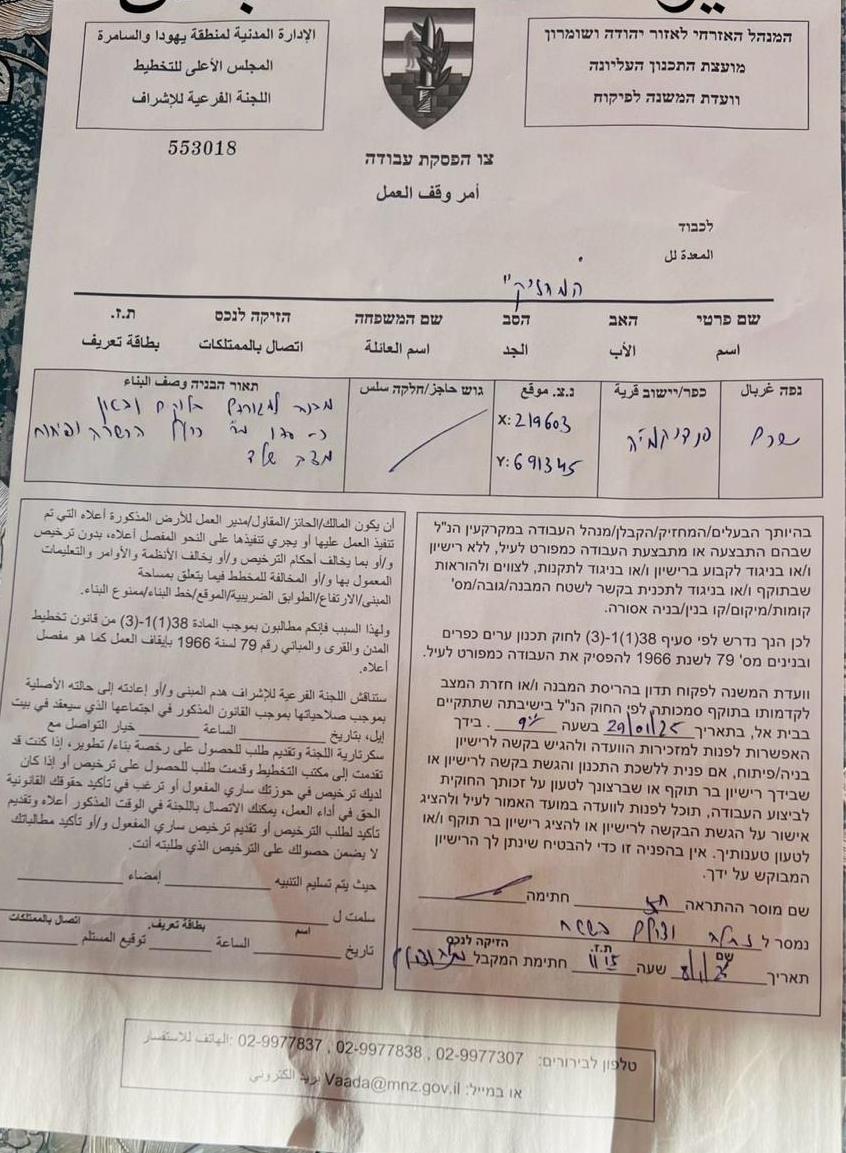 המנהל האזרחי לאזור יהודה ושומרון
מועצת התכנון העליונה
וועדת המשנה לפיקוח
الإدارة المدنية لمنطقة يهودا والسامرة
المجلس الأعلى للتخطيط
اللجنة الفرعية للإشراف
553018
צו הפסקת עבודה
أمر وقف العمل
לכבוד
المعدة لل
"המחזיק"
שם פרטי האב הסב שם המשפחה הזיקה לנכס ת.ז.
اسم الأب الجد اسم العائلة اتصال بالممتلكات بطاقة تعريف
נפה غربال כפר/יישוב قرية נ.צ. موقع גוש حاجز/חלקה سلس תאור הבניה وصف البناء
X: 219603
Y: 691345
בהיותך הבעלים/המחזיק/הקבלן/מנהל העבודה במקרקעין הנ"ל
שבהם התבצעה או מתבצעת העבודה כמפורט לעיל, ללא רישיון
ו/או בניגוד לקבוע ברישיון ו/או בניגוד לתקנות, לצווים ולהוראות
שבתוקף ו/או בניגוד לתכנית בקשר לשטח המבנה/גובה/מס'
קומות/מיקום/קו בנין/בניה אסורה.
לכן הנך נדרש לפי סעיף 38(1)1-(3) לחוק תכנון ערים כפרים
ובנינים מס' 79 לשנת 1966 להפסיק את העבודה כמפורט לעיל.
וועדת המשנה לפקוח תדון בהריסת המבנה ו/או חזרת המצב
לקדמותו בתוקף סמכותה לפי החוק הנ"ל בישיבתה שתתקיים
בבית אל, בתאריך 29/01/25 בשעה . בידך
האפשרות לפנות למזכירות הוועדה ולהגיש בקשה לרישיון
בניה/פיתוח, אם פנית ללשכת התכנון והגשת בקשה לרישיון או
שבידך רישיון בר תוקף או שברצונך לטעון על זכותך החוקית
לביצוע העבודה, תוכל לפנות לוועדה במועד האמור לעיל ולהציג
אישור על הגשת הבקשה לרישיון או להציג רישיון בר תוקף ו/או
לטעון טענותיך. אין בהפניה זו כדי להבטיח שינתן לך הרישיון
המבוקש על ידך.
שם מוסר ההתראה חתימה
נמסר ל
שם ת.ז. הזיקה לנכס
תאריך שעה חתימת המקבל
أن يكون المالك/الحائز/المقاول/مدير العمل للأرض المذكورة أعلاه التي تم
تنفيذ العمل عليها أو يجري تنفيذها على النحو المفصل أعلاه، بدون ترخيص
و/أو بما يخالف أحكام الترخيص و/أو يخالف الأنظمة والأوامر والتعليمات
المعمول بها و/أو المخالفة للمخطط فيما يتعلق بمساحة
المبنى/الارتفاع/الطوابق الضريبية/الموقع/خط البناء/ممنوع البناء.
ولهذا السبب فإنكم مطالبون بموجب المادة 38(1)1-(3) من قانون تخطيط
المدن والقرى والمباني رقم 79 لسنة 1966 بإيقاف العمل كما هو مفصل
أعلاه.
ستناقش اللجنة الفرعية للإشراف هدم المبنى و/أو إعادته إلى حالته الأصلية
بموجب صلاحياتها بموجب القانون المذكور في اجتماعها الذي سيعقد في بيت
إيل، بتاريخ الساعة خيار التواصل مع
سكرتارية اللجنة وتقديم طلب للحصول على رخصة بناء/ تطوير، إذا كنت قد
تقدمت إلى مكتب التخطيط وقدمت طلب للحصول على ترخيص أو إذا كان
لديك ترخيص في حوزتك ساري المفعول أو ترغب في تأكيد حقوقك القانونية
الحق في أداء العمل، يمكنك الاتصال باللجنة في الوقت المذكور أعلاه وتقديم
تأكيد لطلب الترخيص أو تقديم ترخيص ساري المفعول و/أو تأكيد مطالباتك
لا يضمن حصولك على الترخيص الذي طلبته أنت.
حيث يتم تسليم التنبيه إمضاء
سلمت ل
اسم بطاقة تعريف. اتصال بالممتلكات
تاريخ الساعة توقيع المستلم
טלפון לבירורים: 02-9977307 , 02-9977838 , 02-9977837 :الهاتف للاستفسار
או במייל: Vaada@mnz.gov.il بريد الكتروني